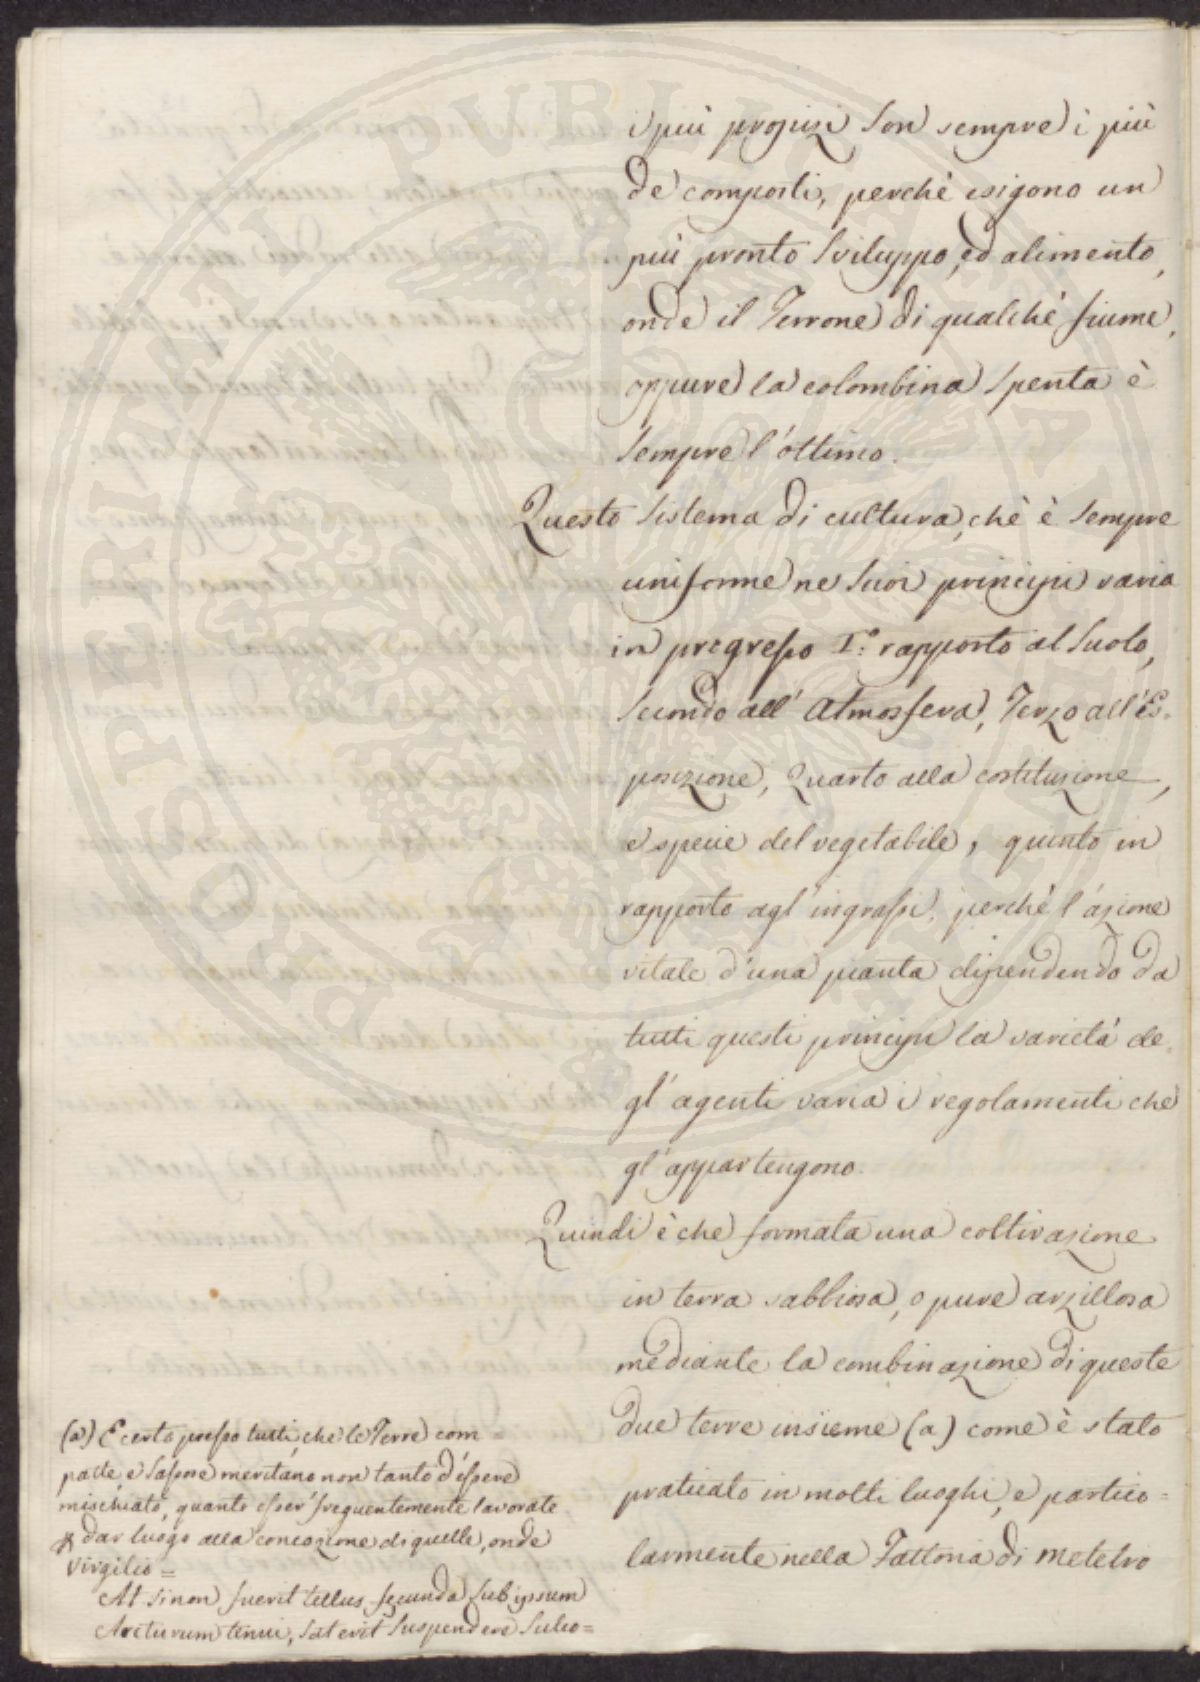 i più propizi son sempre i più
de composti, perchè esigono un
più pronto sviluppo, ed alimento,
onde il Terrone di qualchè fiume,
oppure la colombina spenta è
sempre l'ottimo.
Questo sistema di cultura, chè è sempre
uniforme ne suoi principii varia
in progresso I.° rapporto al suolo,
secondo all' Atmosfera, Terzo all' Es-
posizione, Quarto alla costituzione,
e specie del vegetabile, quinto in
rapporto agl' ingrassi, perchè l'azione
vitale d'una pianta dipendendo da
tutti questi principii la varietà de-
gl' agenti varia i regolamenti che
gl' appartengono.
Quindi è che formata una coltivazione
in terra sabbiosa, o pure arzillosa
mediante la combinazione di queste
due terre insieme (a) come è stato
praticato in molti luoghi, e partico-
larmente nella Fattoria di Metelvo
(a) E certo presso tutti, che le Terre com-
patte e Sassose meritano non tanto d'essere
mischiate, quanto esser' frequentemente lavorate
dar luogo alla concozione di quelle, onde
Virgilio =
At si non fuerit tellus fecunda sub ipsum
Arcturum tenui, sat erit suspendere sulco =
PROSPERITATI PVBLICAE AVGENDAE